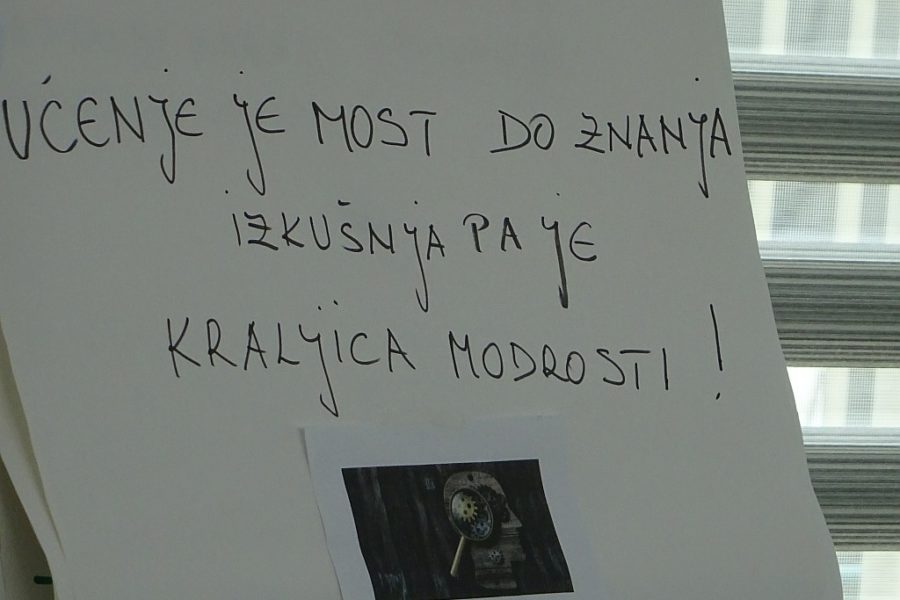 UČENJE JE MOST DO ZNANJA
IZKUŠNJA PA JE
KRALJICA MODROSTI!